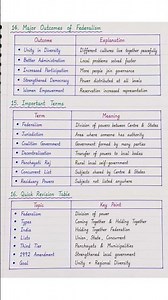 14. Major Outcomes of Federalism
Outcome Explanation
• Unity in Diversity Different cultures live together peacefully
• Better Administration Local problems solved faster
• Increased Participation More people join governance
• Strengthened Democracy Power distributed at all levels
• Women Empowerment Reservation increased representation
15. Important Terms
Term Meaning
• Federalism Division of powers between Centre & States
• Jurisdiction Area where someone has authority
• Coalition Government Government formed by many parties
• Decentralisation Transfer of powers to local bodies
• Panchayati Raj Rural local self-government
• Concurrent List Subjects shared by Centre & States
• Residuary Powers Subjects not listed anywhere
16. Quick Revision Table
Topic Key Point
• Federalism Division of power
• Types Coming Together & Holding Together
• India Holding Together Federation
• Lists Union, State, Concurrent
• Third Tier Panchayats & Municipalities
• 1992 Amendment Strengthened local government
• Goal Unity + Regional Diversity